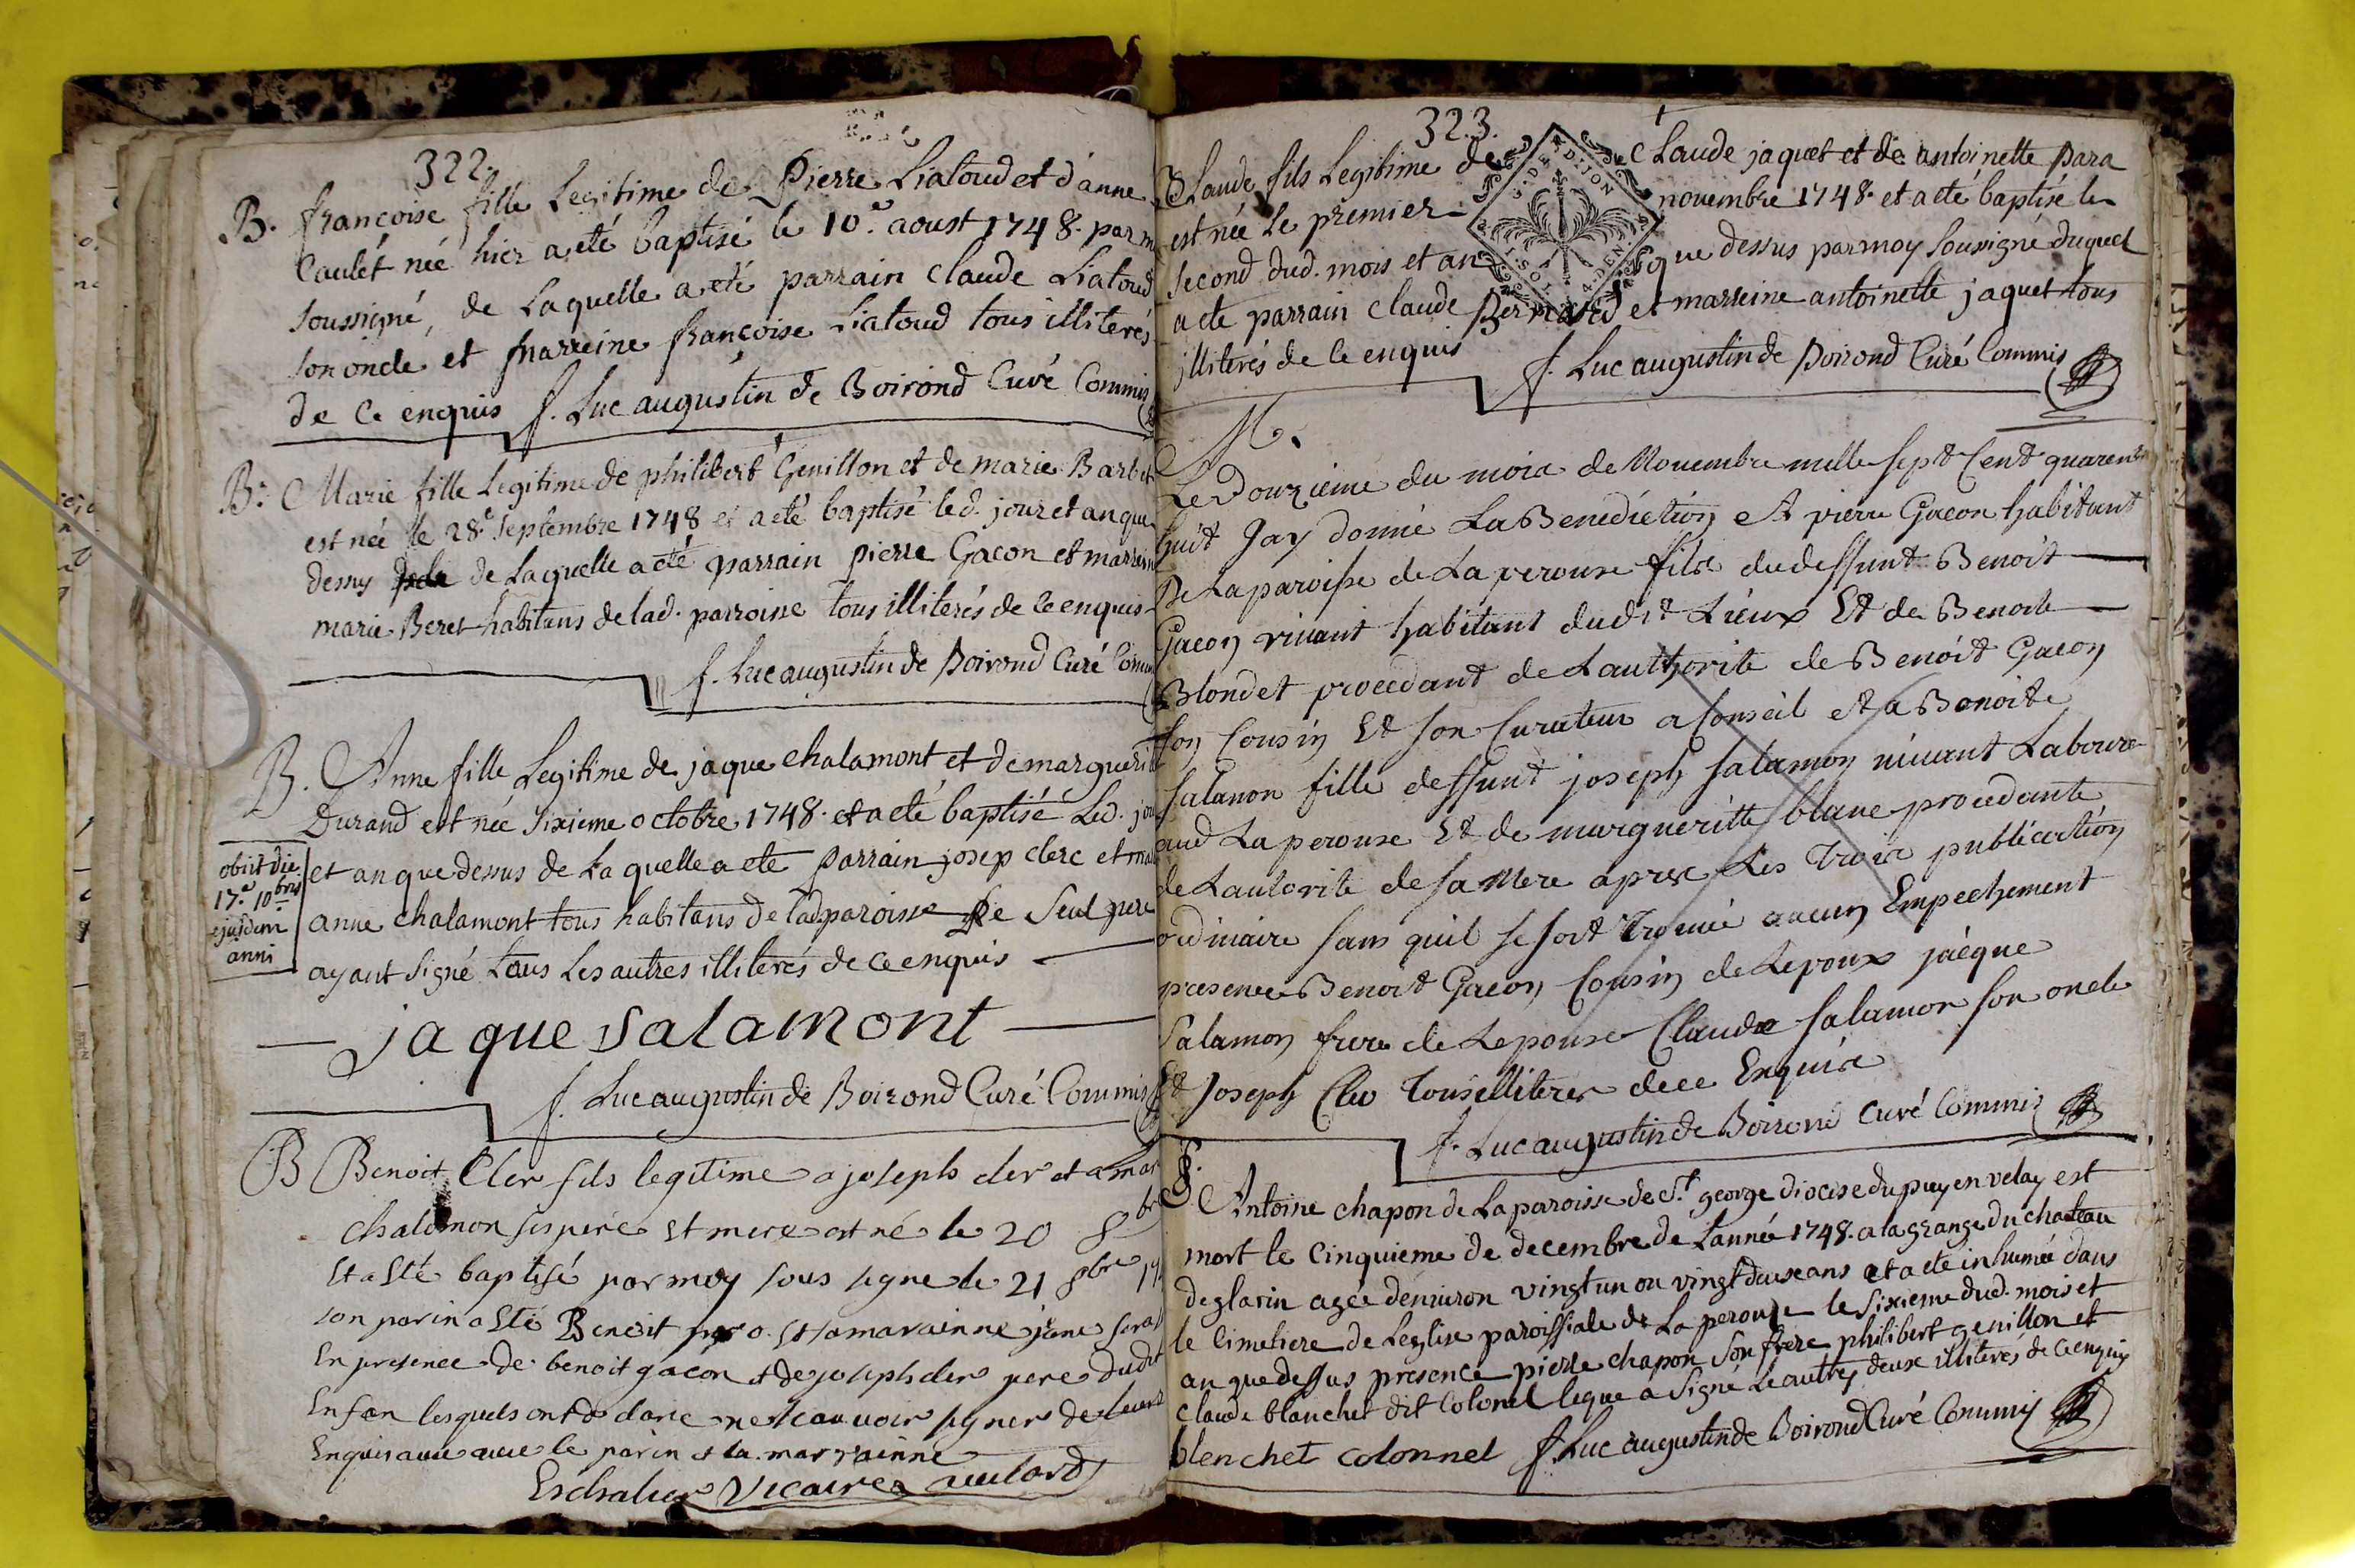 322.
B. françoise fille Legitime de Pierre Liatoud et d'anne
Caulét née hier a eté baptisé le 10.e aoust 1748. par m
soussigné, de Laquelle a eté parrain claude Liatoud
son oncle et marreine françoise Liatoud tous illiterés
de Ce enquis f. Luc augustin de Boirond Curé Commis
B. Marie fille Legitime de philibert Genillon et de marie Barbet
est née le 28.e septembre 1748 et a eté baptisé led. jour et an que
dessus de Laquelle a eté parrain pierre Gacon et marreine
marie Beret habitans de lad. parroisse tous illiterés de Ce enquis
f. Luc augustin de Boirond Curé Comm
B. Anne fille Legitime de jaque chalamont et de marguerit
Durand est née sixieme octobre 1748. et a eté baptisé Led. jou
et an que dessus de La quelle a ete parrain josep clerc et ma
anne chalamont tous habitans de lad paroisse Le seul pere
ayant signé tous Les autres illiterés de ce enquis
obiit die
17.a 10bris
ejusdem
anni
jaque salamont
f. Luc augustin de Boirond Curé Commis
B Benoit Cler fils legitime a joseph cler et a mar
chalamon ses pere et mere est né le 20 8br
et a Eté baptisé par moy sous signe le 21 8bre 17
son parin a Eté Benoit et sa marainne jane
En presence de benoit gacon et de joseph cler pere dudit
Enfan lesquels ont declare ne scauvoir signer de
Enquis aussi avec le parin et la marrainne
Vicaire
323.
Claude fils Legitime de Claude jaquet et de antoinette Para
est née Le premier novembre 1748. et a eté baptisé le
second dud. mois et an que dessus par moy soussigné duquel
a eté parrain claude Bernard et marreine antoinette jaquet tous
illiterés de Ce enquis f. Luc augustin de Boirond Curé Commis
G. DE DIJON
SOL. 4 DEN.
M.
Le Douzieme du mois de Novembre mille sept Cent quarente
huit Jay donné La Benediction et pierre Gacon habitant
De La paroisse de La perouse fils du deffunt Benoit
Gacon vivant habitant dudit Lieux Et de Benoite
Blondet procedant de Lauthorite de Benoit Gacon
son Cousin Et son Curateur a Conseil et a Benoite
salamon fille deffunt joseph salamon vivant Laboure
aud La perouse Et de margueritte blanc procedante
de Lautorite de sa Mere apres Les Trois publication
ordinaire sans quil se soit Trouvé aucun Empechement
presence Benoit Gacon Cousin de Lepoux jacque
Salamon frere de Lepouse Claude salamon son oncle
Et Joseph Cler Tous illiteres dece Enquis
f. Luc augustin de Boirond Curé Commis
S. Antoine chapon de La paroisse de St. george diocese du puy en velay est
mort le Cinquieme de decembre de L'année 1748. a la grange du chateau
de glarin agée denviron vingt un ou vingt deux ans et a eté inhumée dans
le Cimetiere de L'eglise paroissiale de La perouse le sixieme dud. mois et
an que dessus presence pierre chapon son frere philibert genillon et
claude blanchet dit Colonel leque a signé Le autres deux illiterés de ce enquis
blenchet colonnel f. Luc augustin de Boirond Curé Commis